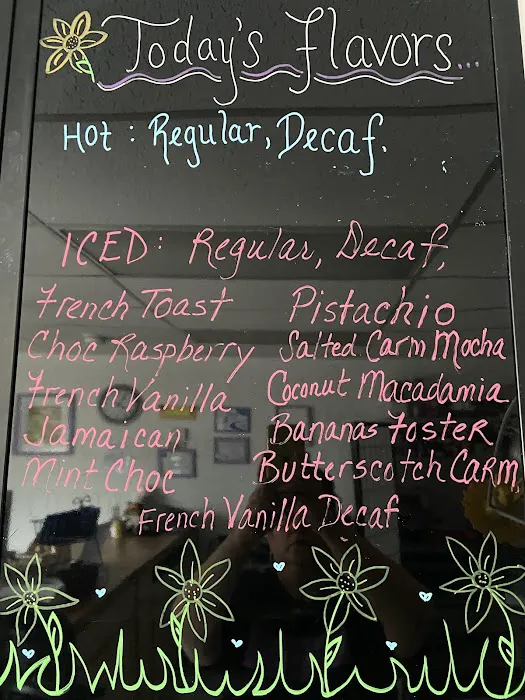 Today's Flavors...
Hot: Regular, Decaf.
ICED: Regular, Decaf,
French Toast Pistachio
Choc Raspberry Salted Carm Mocha
French Vanilla Coconut Macadamia
Jamaican Bananas Foster
Mint Choc Butterscotch CARM
French Vanilla Decaf